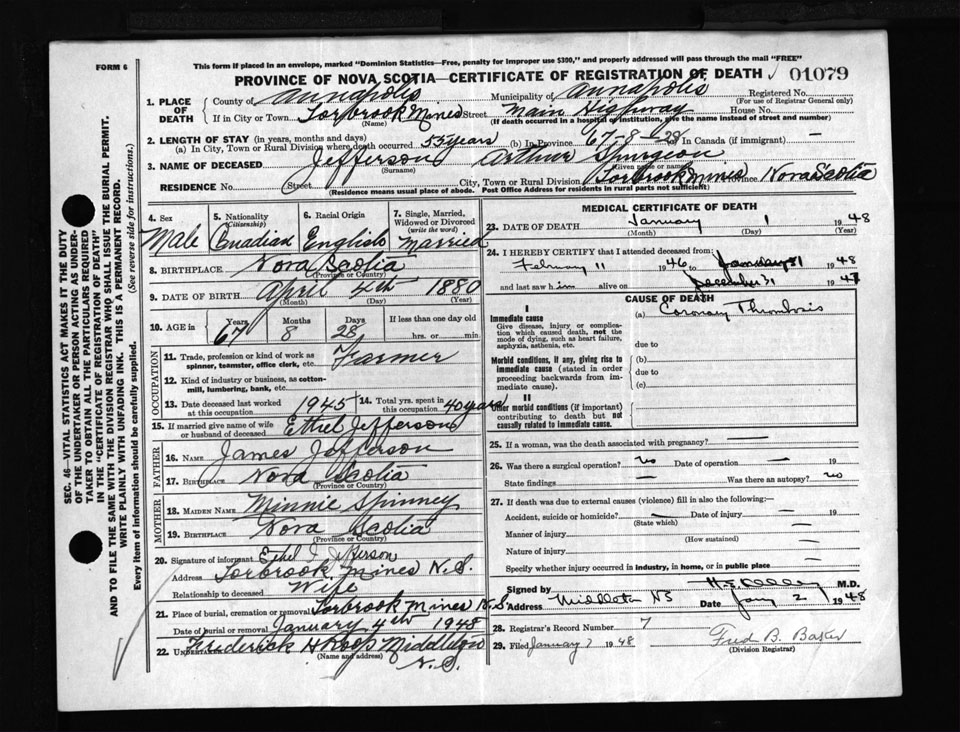 FORM 6
This form if placed in an envelope, marked "Dominion Statistics—Free, penalty for improper use $300," and properly addressed will pass through the mail "FREE"
PROVINCE OF NOVA SCOTIA—CERTIFICATE OF REGISTRATION OF DEATH 01079
1. PLACE OF DEATH
County of Annapolis Municipality of Annapolis Registered No.
(For use of Registrar General only)
If in City or Town Torbrook Mines Street Main Highway House No.
(Name) (If death occurred in a hospital or institution, give the name instead of street and number)
2. LENGTH OF STAY (in years, months and days)
(a) In City, Town or Rural Division where death occurred 55 years (b) In Province 67-8-28 (c) In Canada (if immigrant) —
3. NAME OF DECEASED Jefferson Arthur Spurgeon
(Surname) (Given name or names)
RESIDENCE No. Street City, Town or Rural Division Torbrook Mines Province Nova Scotia
(Residence means usual place of abode. Post Office Address for residents in rural parts not sufficient)
4. Sex
Male
5. Nationality
(Citizenship)
Canadian
6. Racial Origin
English
7. Single, Married, Widowed or Divorced
(write the word)
Married
8. BIRTHPLACE Nova Scotia
(Province or Country)
9. DATE OF BIRTH April 4th 1880
(Month) (Day) (Year)
10. AGE in Years Months Days If less than one day old
67 8 28 hrs. or min.
OCCUPATION
11. Trade, profession or kind of work as Farmer
spinner, teamster, office clerk, etc.
12. Kind of industry or business, as cotton-
mill, lumbering, bank, etc.
13. Date deceased last worked at this occupation 1945
14. Total yrs. spent in this occupation 40 years
15. If married give name of wife or husband of deceased Ethel Jefferson
FATHER
16. NAME James Jefferson
17. BIRTHPLACE Nova Scotia
(Province or Country)
MOTHER
18. MAIDEN NAME Minnie Spinney
19. BIRTHPLACE Nova Scotia
(Province or Country)
20. Signature of informant Ethel J. Jefferson
Address Torbrook Mines N.S.
Relationship to deceased Wife
21. Place of burial, cremation or removal Torbrook Mines N.S.
Date of burial or removal January 4th 1948
22. UNDERTAKER Frederick H Roop Middleton
(Name and address) N.S.
MEDICAL CERTIFICATE OF DEATH
23. DATE OF DEATH January 1 1948
(Month) (Day) (Year)
24. I HEREBY CERTIFY that I attended deceased from:
February 11 1946 to 1948
and last saw him alive on December 31 1947
CAUSE OF DEATH
I
Immediate cause (a) Coronary Thrombosis
Give disease, injury or complica-
tion which caused death, not
the mode of dying, such as heart failure,
asphyxia, asthenia, etc.
due to
Morbid conditions, if any, giving rise to (b)
immediate cause (stated in order
proceeding backwards from im-
mediate cause).
due to
(c)
II
Other morbid conditions (if important)
contributing to death but not
causally related to immediate cause.
25. If a woman, was the death associated with pregnancy? —
26. Was there a surgical operation? no Date of operation — 19
State findings — Was there an autopsy? no
27. If death was due to external causes (violence) fill in also the following:—
Accident, suicide or homicide? — Date of injury — 19
(State which)
Manner of injury —
(How sustained)
Nature of injury —
Specify whether injury occurred in industry, in home, or in public place —
Signed by H.E. Kelley M.D.
Address Middleton NS Date Jan 2 1948
28. Registrar's Record Number 7
29. Filed January 7 1948 Fred B. Baker
(Division Registrar)
SEC. 46—VITAL STATISTICS ACT MAKES IT THE DUTY
OF THE UNDERTAKER OR PERSON ACTING AS UNDER-
TAKER TO OBTAIN ALL THE PARTICULARS REQUIRED
IN THE "CERTIFICATE OF REGISTRATION OF DEATH"
AND TO FILE THE SAME WITH THE DIVISION REGISTRAR WHO SHALL ISSUE THE BURIAL PERMIT.
WRITE PLAINLY WITH UNFADING INK. THIS IS A PERMANENT RECORD.
Every item of information should be carefully supplied. (See reverse side for instructions.)